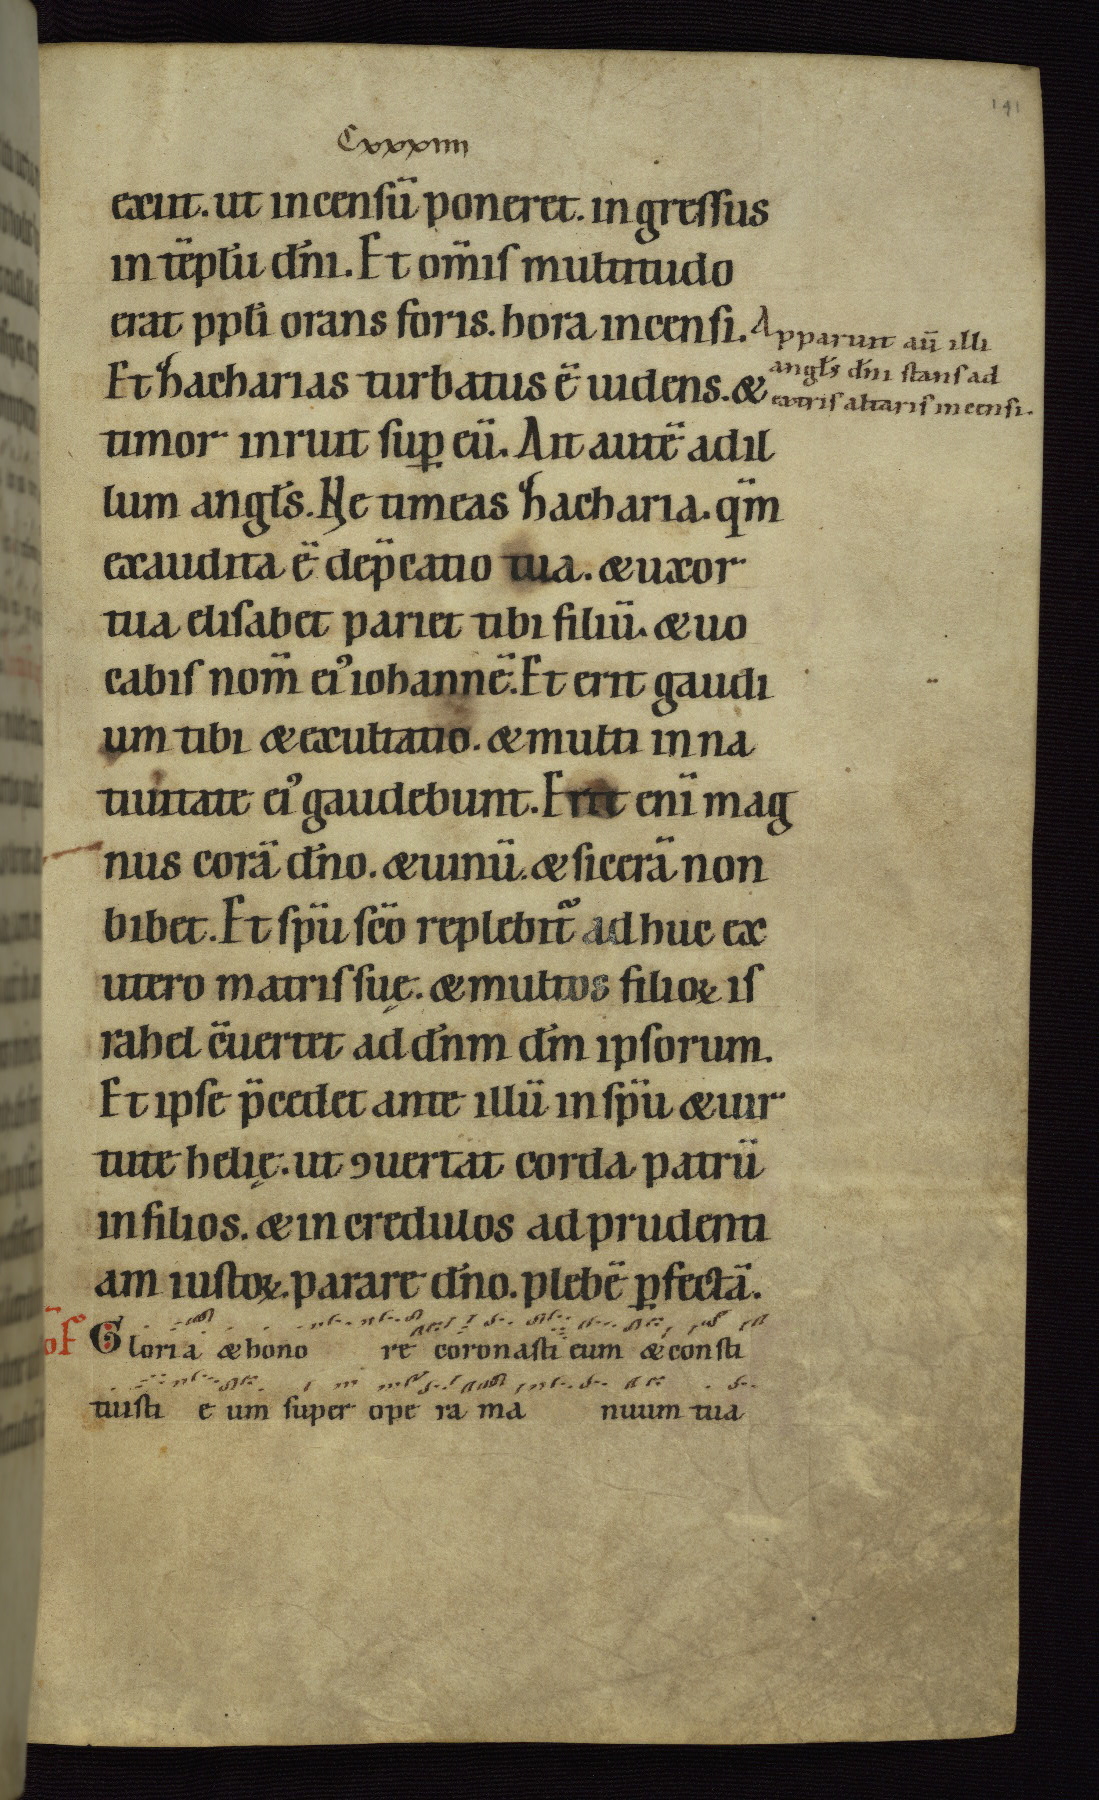 141
Cxxxiiii
exiit. ut incensū poneret. ingressus
in tēplū dn̄i. Et om̄is multitudo
erat ppl̄i orans foris. hora incensi.
Apparuit aū illi
angl̄s dn̄i stans ad
extris altaris incensi.
Et hacharias turbatus ē uidens. &
timor inruit sup eū. Ait autē ad il
lum angl̄s. Ne timeas hacharia. qm̄
exaudita ē dep̄catio tua. & uxor
tua elisabet pariet tibi filiū. & uo
cabis nom̄ ei᾽ iohannē. Et erit gaudi
um tibi & exultatio. & multi in na
tiuitate ei᾽ gaudebunt. Erit enī mag
nus corā dn̄o. & uinū. & sicerā non
bibet. Et sp̄u sc̄o replebit᷑ adhuc ex
utero matris suę. & multos filioꝝ is
rahel c̄uertet ad dn̄m dm̄ ipsorum.
Et ipse p̄cedet ante illū in sp̄u & uir
tute helię. ut ꝯuertat corda patrū
in filios. & incredulos ad prudenti
am iustoꝝ. parare dn̄o. plebē ꝑfectā.
of̄ Gloria & hono re coronasti eum & consti
tuisti e um super ope ra ma nuum tua